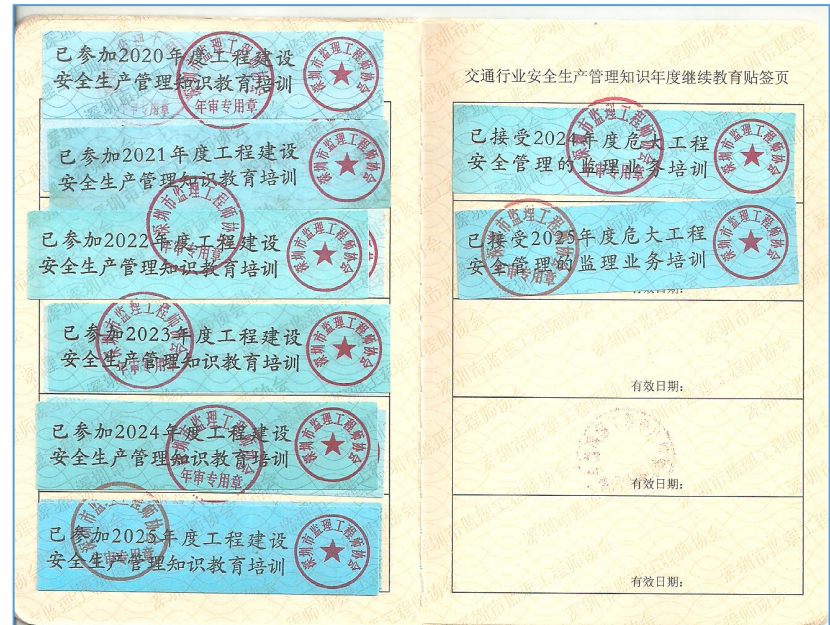 已参加2020年度工程建设
安全生产管理知识教育培训
深圳市监理工程师协会
年审专用章
已参加2021年度工程建设
安全生产管理知识教育培训
深圳市监理工程师协会
已参加2022年度工程建设
安全生产管理知识教育培训
深圳市监理工程师协会
年审专用章
已参加2023年度工程建设
安全生产管理知识教育培训
深圳市监理工程师协会
年审专用章
已参加2024年度工程建设
安全生产管理知识教育培训
深圳市监理工程师协会
年审专用章
已参加2025年度工程建设
安全生产管理知识教育培训
深圳市监理工程师协会
年审专用章
交通行业安全生产管理知识年度继续教育贴签页
已接受2024年度危大工程
安全管理的监理业务培训
深圳市监理工程师协会
年审专用章
已接受2025年度危大工程
安全管理的监理业务培训
深圳市监理工程师协会
年审专用章
有效日期：
有效日期：
有效日期：
有效日期：